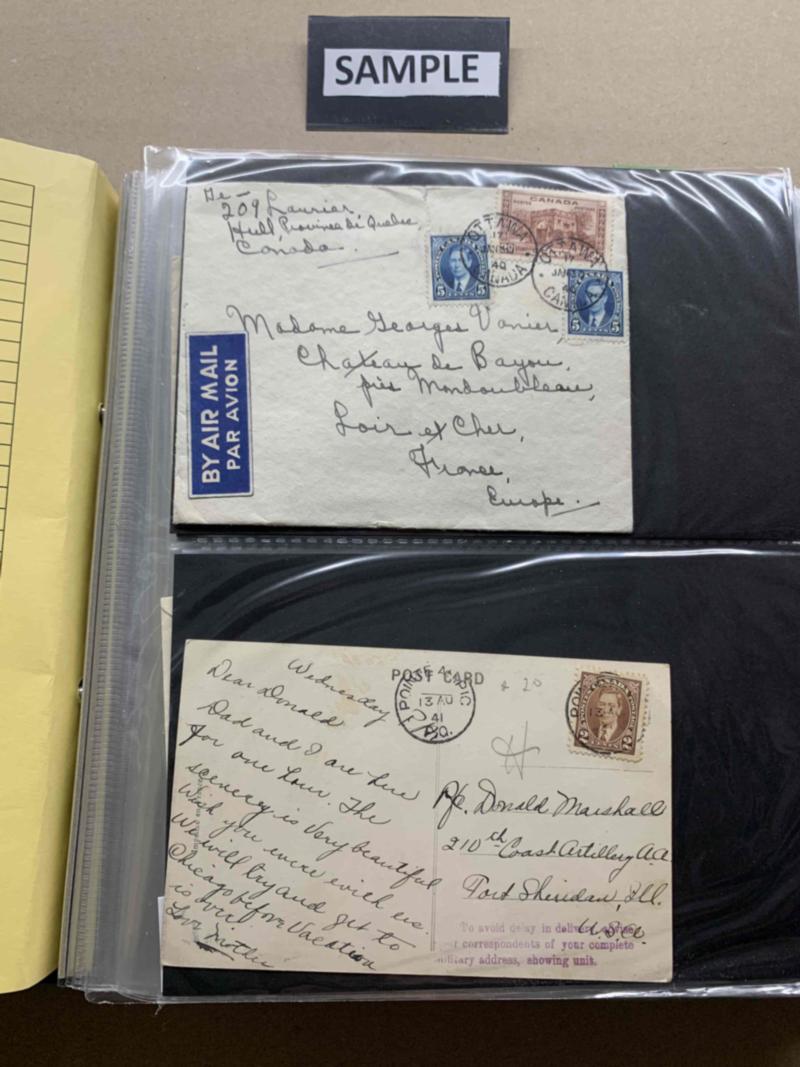 SAMPLE
De —
209 Laurier,
Hull, Province de Quebec,
Canada.
CANADA
POSTES POSTAGE
OTTAWA
17
JAN
40
CANADA
OTTAWA
17
JAN
CANADA
5 5
5 5
BY AIR MAIL
PAR AVION
Madame Georges Vanier,
Chateau de Bayou,
près Mondoubleau,
Loir et Cher,
France,
Europe.
POST CARD
Wednesday
Dear Donald
Dad and I are here
for one hour. The
scenery is very beautiful
Wish you were with us.
We will try and get to
Chicago before Vacation
is over.
Love Mother
PIC
13 AU
41
P.Q.
2 2
Pfc. Donald Marshall
210th Coast Artillery A.A.
Fort Sheridan, Ill.
U.S.A.
To avoid delay in delivery, advise
your correspondents of your complete
military address, showing unit.